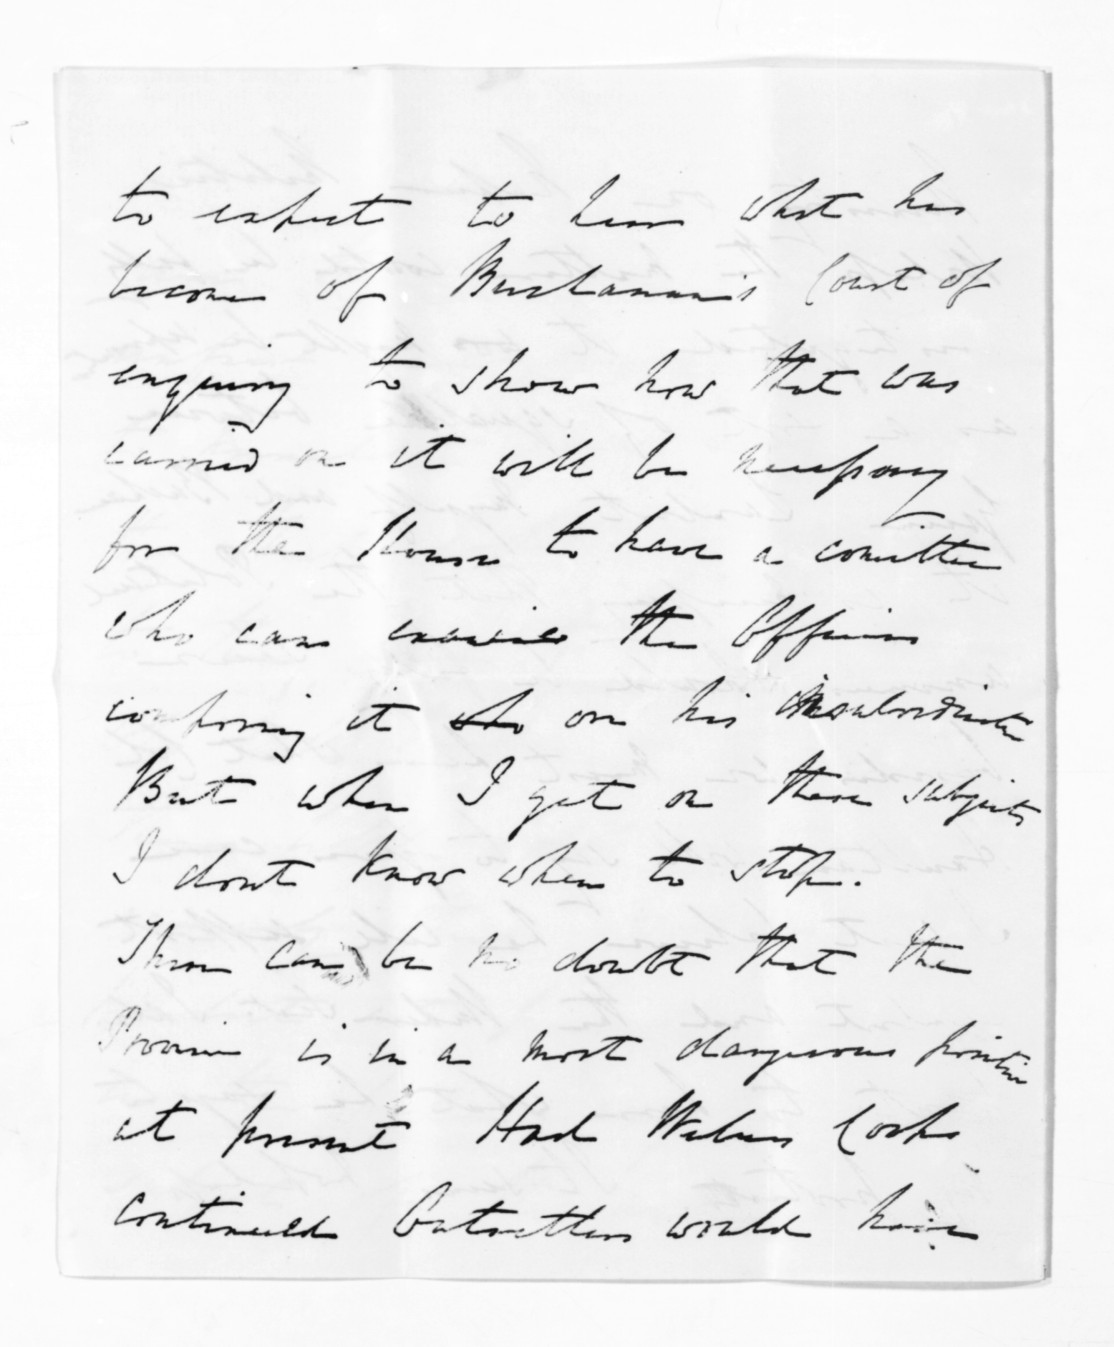 to expect to hear what has
become of Buchanan's Court of
enquiry to show how that was
carried on it will be necessary
for the House to have a comittee
who can examine the Officers
composing it who on his insubordinate
But when I get on these subjects
I dont know when to stop.
There can be no doubt that the
Province is in a most dangerous position
at present Had Webers Corps
continued Outsettlers would have